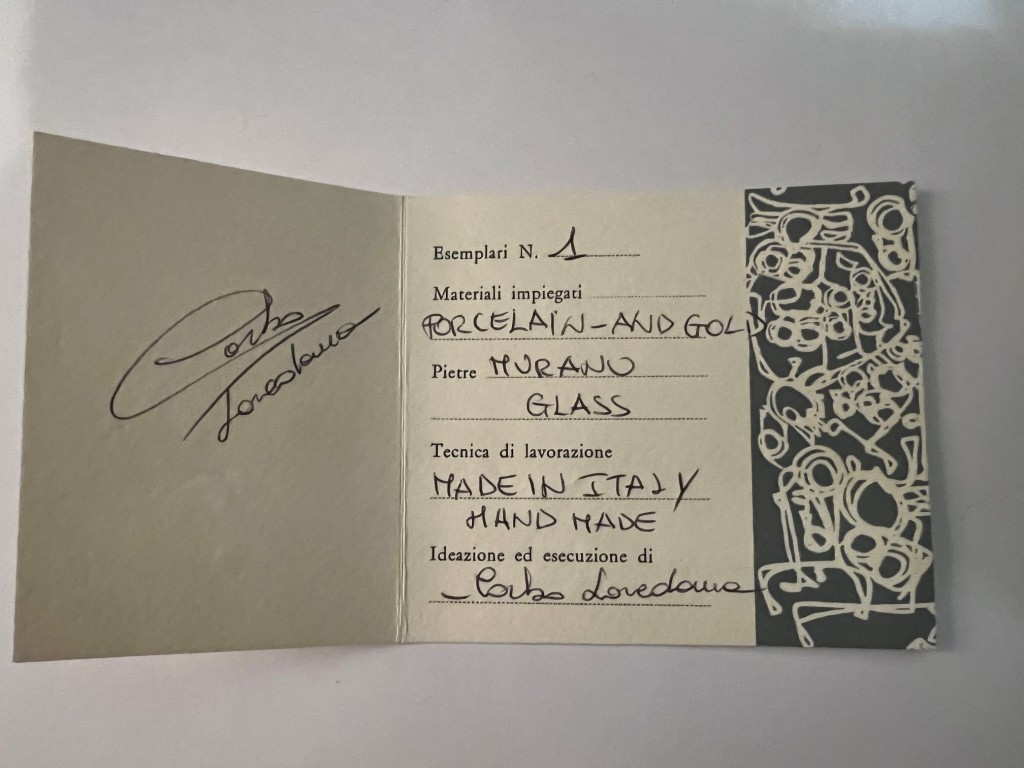 Loredana
Esemplari N. 1
Materiali impiegati
PORCELAIN-AND GOLD
Pietre MURANO
GLASS
Tecnica di lavorazione
MADE IN ITALY
HAND MADE
Ideazione ed esecuzione di
Loredana